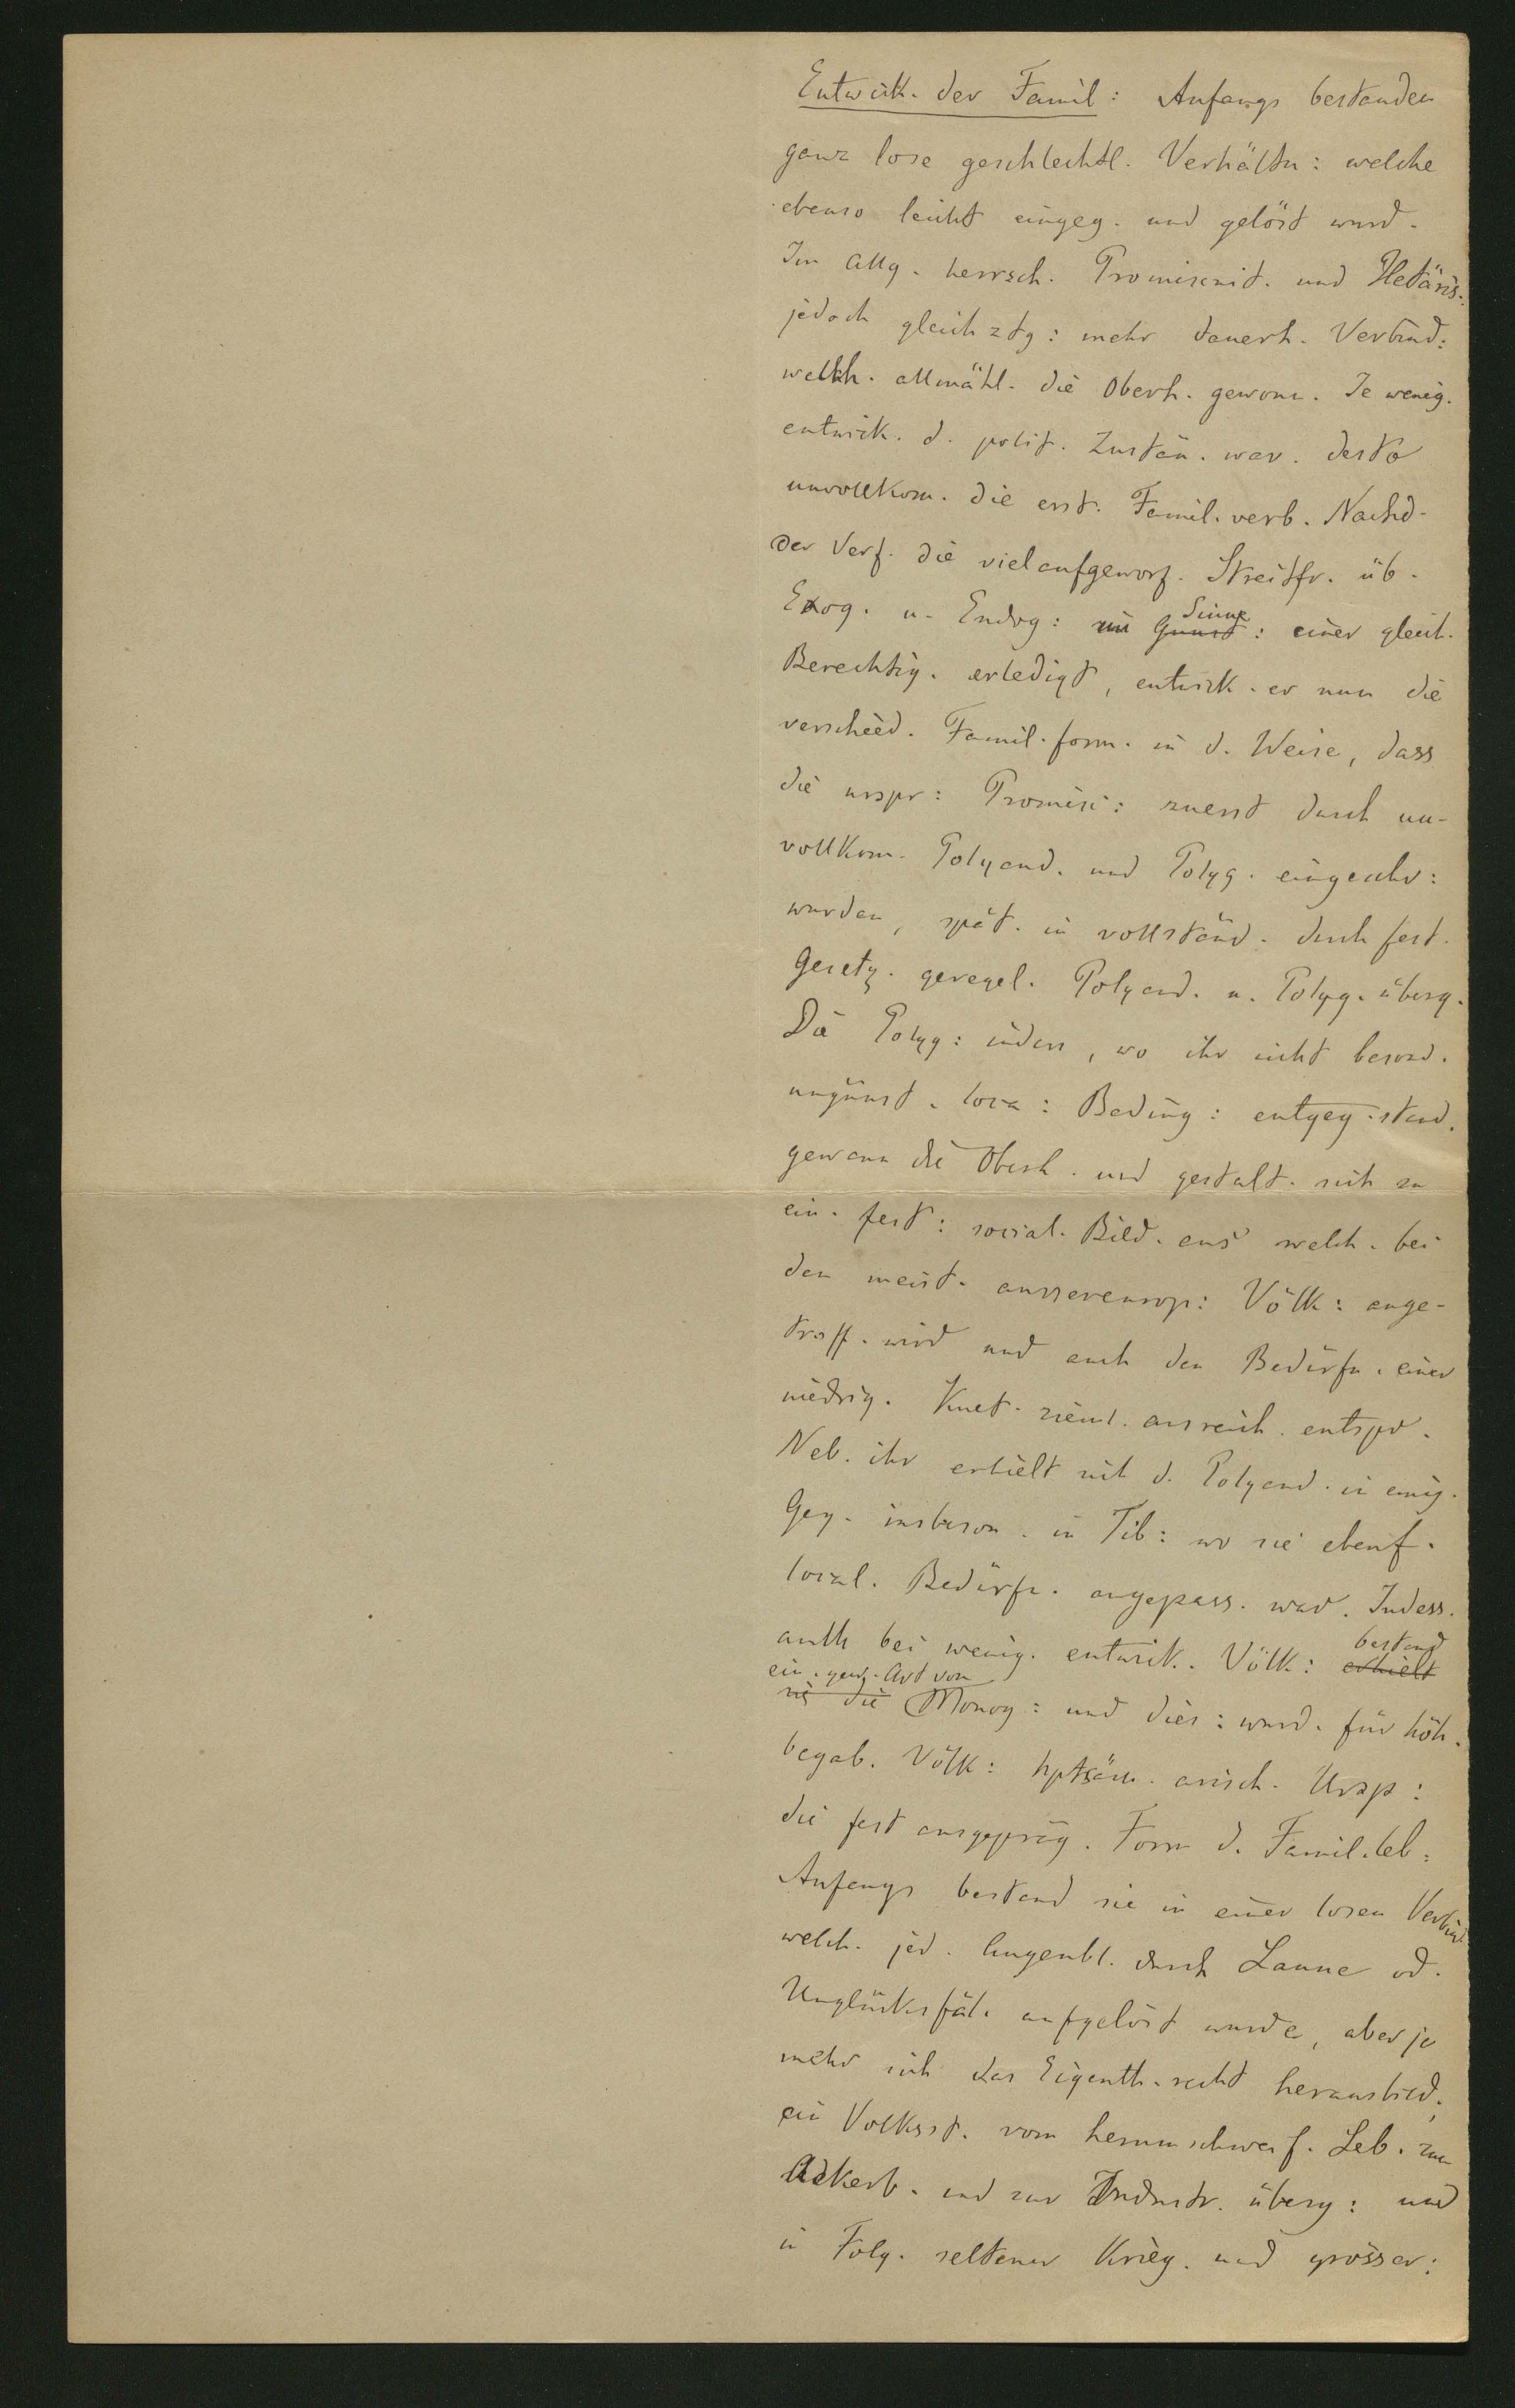 Entwick. der Famil: Anfangs bestanden
ganz lose geschlechtl. Verhältn: welche
ebenso leicht eingeg. und gelöst wurd.
Im allg. herrsch. Promiscuit. und Hetäris:
jedoch gleichztg: mehr dauerh. Verbind:
welch. allmähl. die Oberh. gewonn. Je wenig.
entwick. d. polit. Zustän. war. desto
unvollkom. die erst. Famil. verb. Nachd.
der Verf. die vielaufgeworf. Streitfr. üb.
Exog. u. Endog: im Sinne: einer gleich.
Berechtig. erledigt, entwick. er nun die
verschied. Famil. form. in d. Weise, dass
die urspr: Promisc: zuerst durch un-
vollkom. Polyand. und Polyg. eingeschr:
wurden, spät. in vollständ. durch fest.
Gesetz. geregel. Polyand. u. Polyg. überg.
Die Polyg: indess, wo ihr nicht besond.
ungünst. loca: Beding: entgeg. stand.
gewann die Oberh. und gestalt. sich zu
ein. fest: social. Bild. aus welch. bei
den meist. aussereurop: Völk: ange-
troff. wird und auch den Bedürfn. einer
niedrig. zieml. ausreich. entspr.
Neb. ihr erhielt sich d. Polyand. in einig.
Geg. insbeson. in Tib: wo sie ebenf.
local. Bedürfn. angepass. war. Indess.
auch bei wenig. entwick. Völk: bestand
ein. gew. Art von Monog: und dies: wurd. für höh.
begab. Völk: hptsäch. arisch. Ursp:
die fest ausgepräg. Form d. Famil. leb:
Anfangs bestand sie in einer losen Verbind.
welch. jed. Augenbl. durch Laune od.
Unglücksfäl. aufgelöst wurde, aber je
mehr sich das Eigenth. recht herausbild.,
ein Volksst. vom herumschweif. Leb. zum
Ackerb. und zur Industr. überg: und
in Folg. seltener Krieg. und grösser: